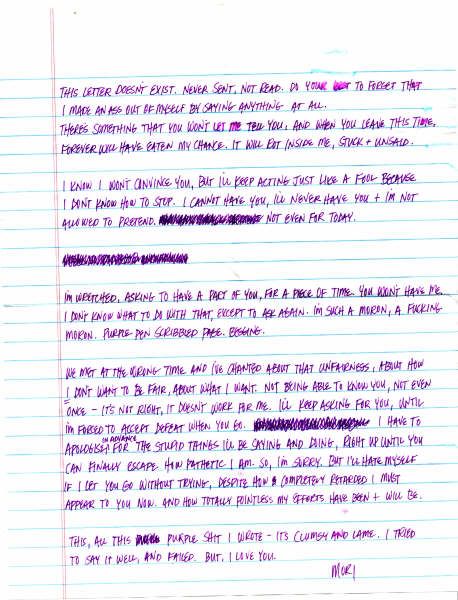 THIS LETTER DOESN'T EXIST. NEVER SENT, NOT READ. DO YOUR BEST TO FORGET THAT
I MADE AN ASS OUT OF MYSELF BY SAYING ANYTHING AT ALL.
THERE'S SOMETHING THAT YOU WON'T LET ME TELL YOU, AND WHEN YOU LEAVE THIS TIME,
FOREVER WILL HAVE EATEN MY CHANCE. IT WILL ROT INSIDE ME, STUCK + UNSAID.
I KNOW I WON'T CONVINCE YOU, BUT I'LL KEEP ACTING JUST LIKE A FOOL BECAUSE
I DON'T KNOW HOW TO STOP. I CANNOT HAVE YOU, I'LL NEVER HAVE YOU + I'M NOT
ALLOWED TO PRETEND. NOT EVEN FOR TODAY.
I'M WRETCHED, ASKING TO HAVE A PART OF YOU, FOR A PIECE OF TIME. YOU WON'T HAVE ME.
I DON'T KNOW WHAT TO DO WITH THAT, EXCEPT TO ASK AGAIN. I'M SUCH A MORON, A FUCKING
MORON. PURPLE PEN SCRIBBLED PAGE. BEGGING.
WE MET AT THE WRONG TIME AND I'VE CHANTED ABOUT THAT UNFAIRNESS, ABOUT HOW
I DON'T WANT TO BE FAIR, ABOUT WHAT I WANT. NOT BEING ABLE TO KNOW YOU, NOT EVEN
ONCE - IT'S NOT RIGHT, IT DOESN'T WORK FOR ME. I'LL KEEP ASKING FOR YOU, UNTIL
I'M FORCED TO ACCEPT DEFEAT WHEN YOU GO. I HAVE TO
APOLOGISE IN ADVANCE FOR THE STUPID THINGS I'LL BE SAYING AND DOING, RIGHT UP UNTIL YOU
CAN FINALLY ESCAPE. HOW PATHETIC I AM. SO, I'M SORRY. BUT I'LL HATE MYSELF
IF I LET YOU GO WITHOUT TRYING, DESPITE HOW COMPLETELY RETARDED I MUST
APPEAR TO YOU NOW. AND HOW TOTALLY POINTLESS MY EFFORTS HAVE BEEN + WILL BE.
THIS, ALL THIS PURPLE SHIT I WROTE - IT'S CLUMSY AND LAME. I TRIED
TO SAY IT WELL, AND FAILED. BUT, I LOVE YOU.
MORI